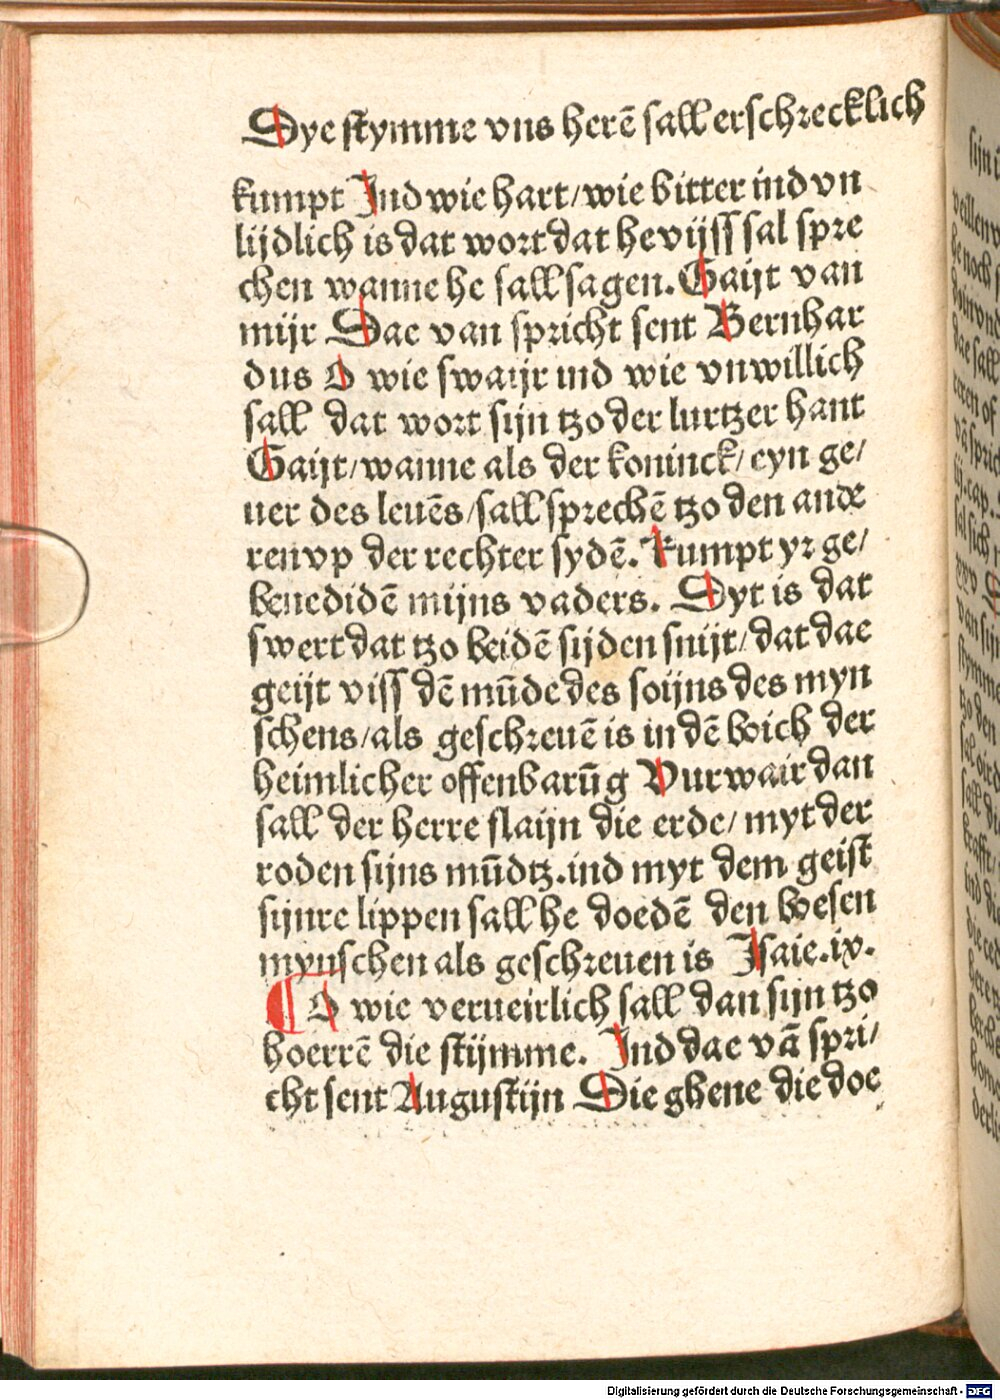 Dye stymme vns herē sall erschrecklich
kumpt Ind wie hart/wie bitter ind vn
lijdlich is dat wort dat he vijss sal spre
chen wanne he sall sagen. Gaijt van
mijr Dae van spricht sent Bernhar
dus O wie swaijr ind wie vnwillich
sall dat wort sijn tzo der lurtzer hant
Gaijt/wanne als der koninck/eyn ge/
uer des leuēs/sall sprechē tzo den ande
ren vp der rechter sydē. Kumpt yr ge/
benedidē mijns vaders. Dyt is dat
swert dat tzo beidē sijden snijt/dat dae
geijt viss dē mūde des soijns des myn
schens/als geschreuē is in dē boich der
heimlicher offenbarūg Vurwair dan
sall der herre slaijn die erde/myt der
roden sijns mūdtz.ind myt dem geist
sijnre lippen sall he doedē den boesen
mynschen als geschreuen is Isaie.ix.
¶ O wie verueirlich sall dan sijn tzo
hoerrē die stijmme. Ind dae vā spri/
cht sent Augustijn Die ghene die doe
Digitalisierung gefördert durch die Deutsche Forschungsgemeinschaft - DFG